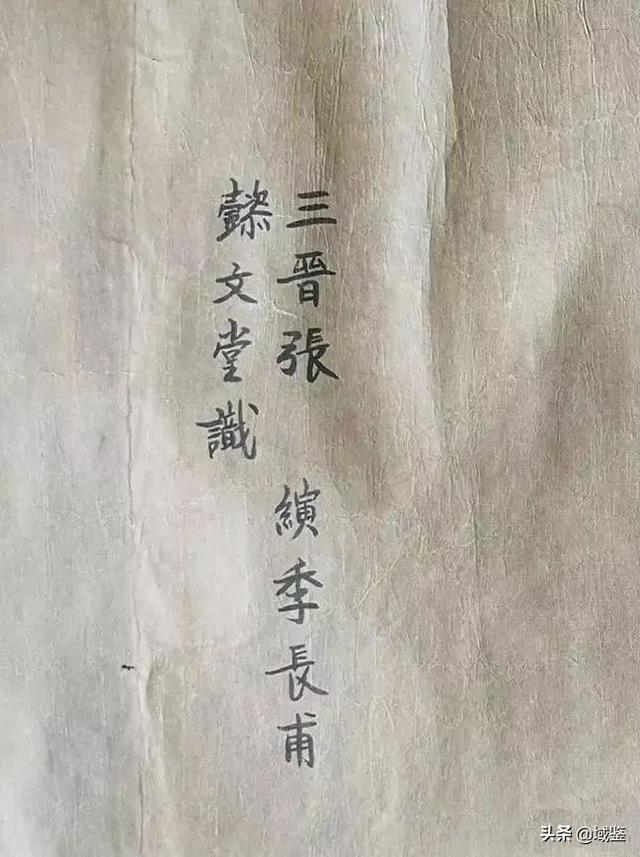 三晉張 縯季長甫
懿文堂識
头条 @域鉴